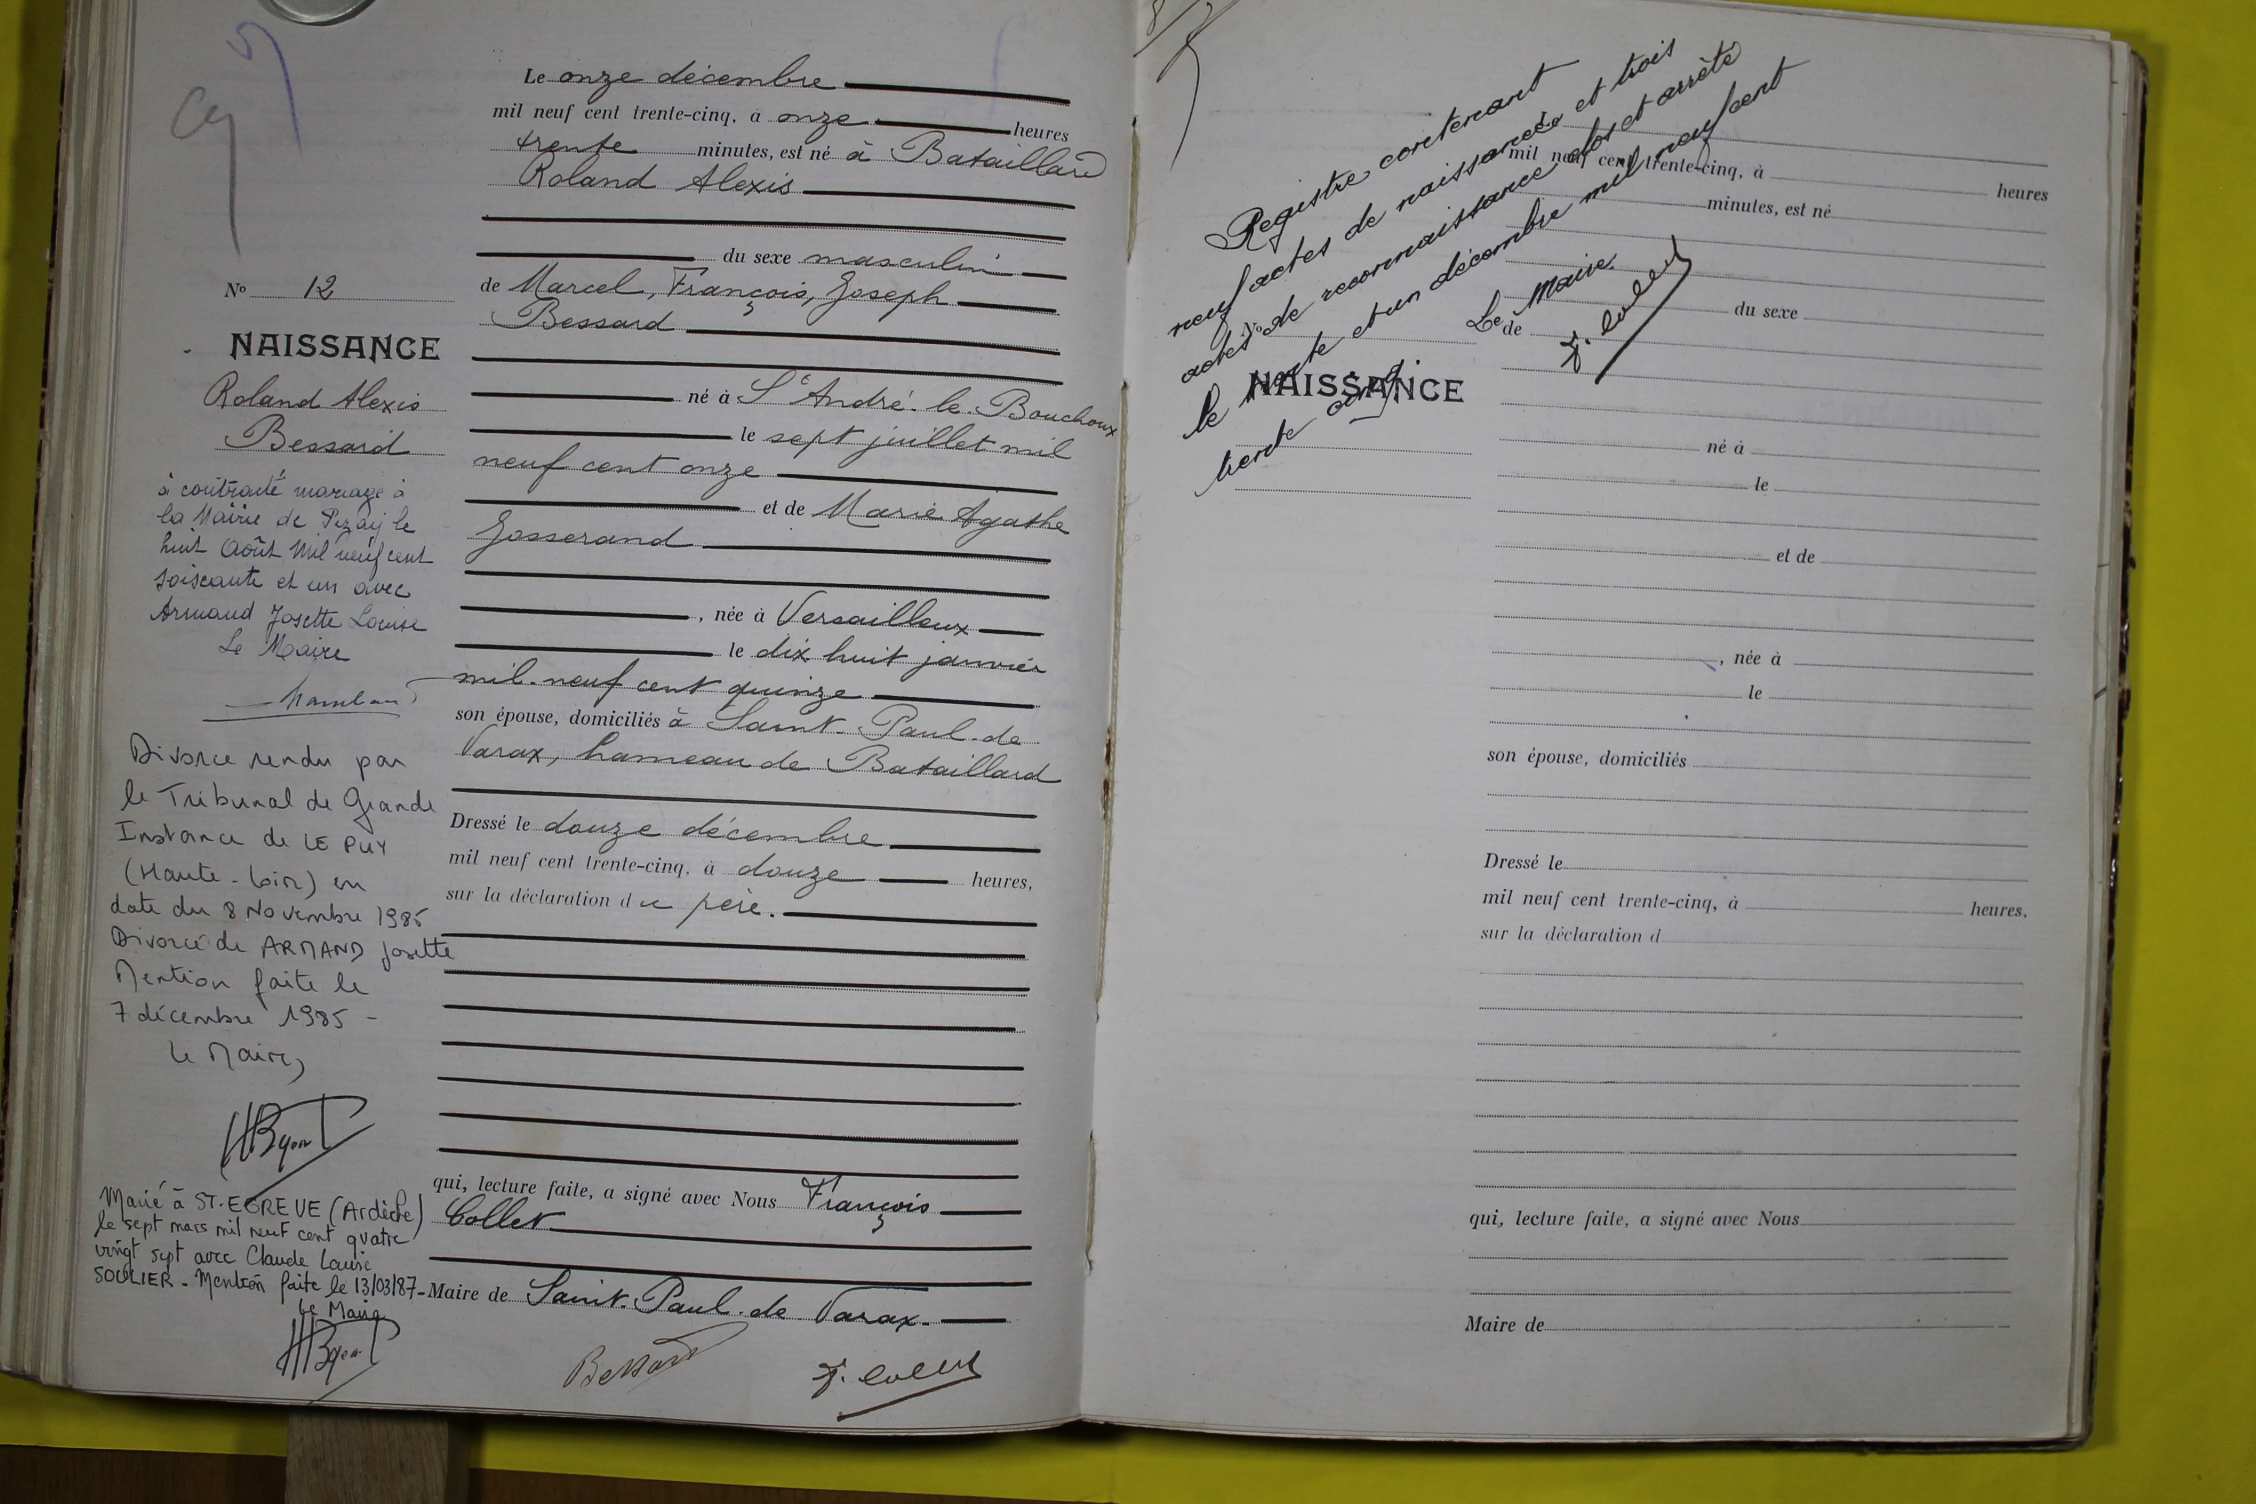 Le onze décembre
mil neuf cent trente-cinq, à onze heures
trente minutes, est né à Bataillard
Roland Alexis
du sexe masculin
de Marcel, François, Joseph
Bessard
né à St André-le-Bouchoux
le sept juillet mil
neuf cent onze
et de Marie Agathe
Josserand
, née à Versailleux
le dix huit janvier
mil-neuf cent quinze
son épouse, domiciliés à Saint-Paul-de
Varax, hameau de Bataillard
Dressé le douze décembre
mil neuf cent trente-cinq, à douze heures,
sur la déclaration du père.
qui, lecture faite, a signé avec Nous François
Collet
Maire de Saint-Paul-de Varax.
Bessard
F. Collet
No 12
NAISSANCE
Roland Alexis
Bessard
à contracté mariage à
la Mairie de Pizay le
huit Août Mil neuf cent
soixante et un avec
Armand Josette Louise
Le Maire
Divorce rendu par
le Tribunal de Grande
Instance de LE PUY
(Haute-Loire) en
date du 8 Novembre 1985
Divorcé de ARMAND Josette
Mention faite le
7 décembre 1985 -
Le Maire,
Marié à ST-EGREVE (Ardèche)
le sept mars mil neuf cent quatre
vingt sept avec Claude Louise
SOULIER - Mention faite le 13/03/87-
Le Maire
Registre contenant
neuf actes de naissances et trois
actes de reconnaissance clos et arrêté
le trente et un décembre mil neuf cent
trente cinq.
Le Maire
F. Collet
mil neuf cent trente-cinq, à heures
minutes, est né
du sexe
No
de
NAISSANCE
né à
le
et de
, née à
le
son épouse, domiciliés
Dressé le
mil neuf cent trente-cinq, à heures,
sur la déclaration d
qui, lecture faite, a signé avec Nous
Maire de